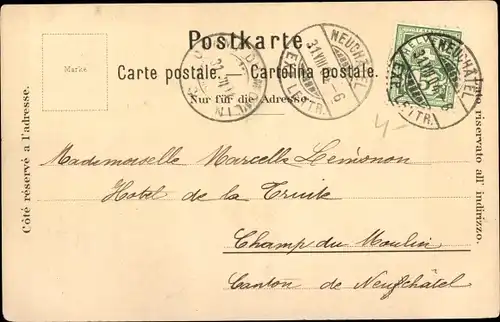 Postkarte.
Marke
Carte postale. — Cartolina postale.
Nur für die Adresse
Côté réservé à l'adresse.
Lato riservato all' indirizzo.
NEUCHÂTEL
31 VIII
EXP. LETTR.
NEUCHÂTEL
EXP. LETTR.
Mademoiselle Marcelle
Hotel de la Truite
Champ du Moulin
Canton de Neufchâtel